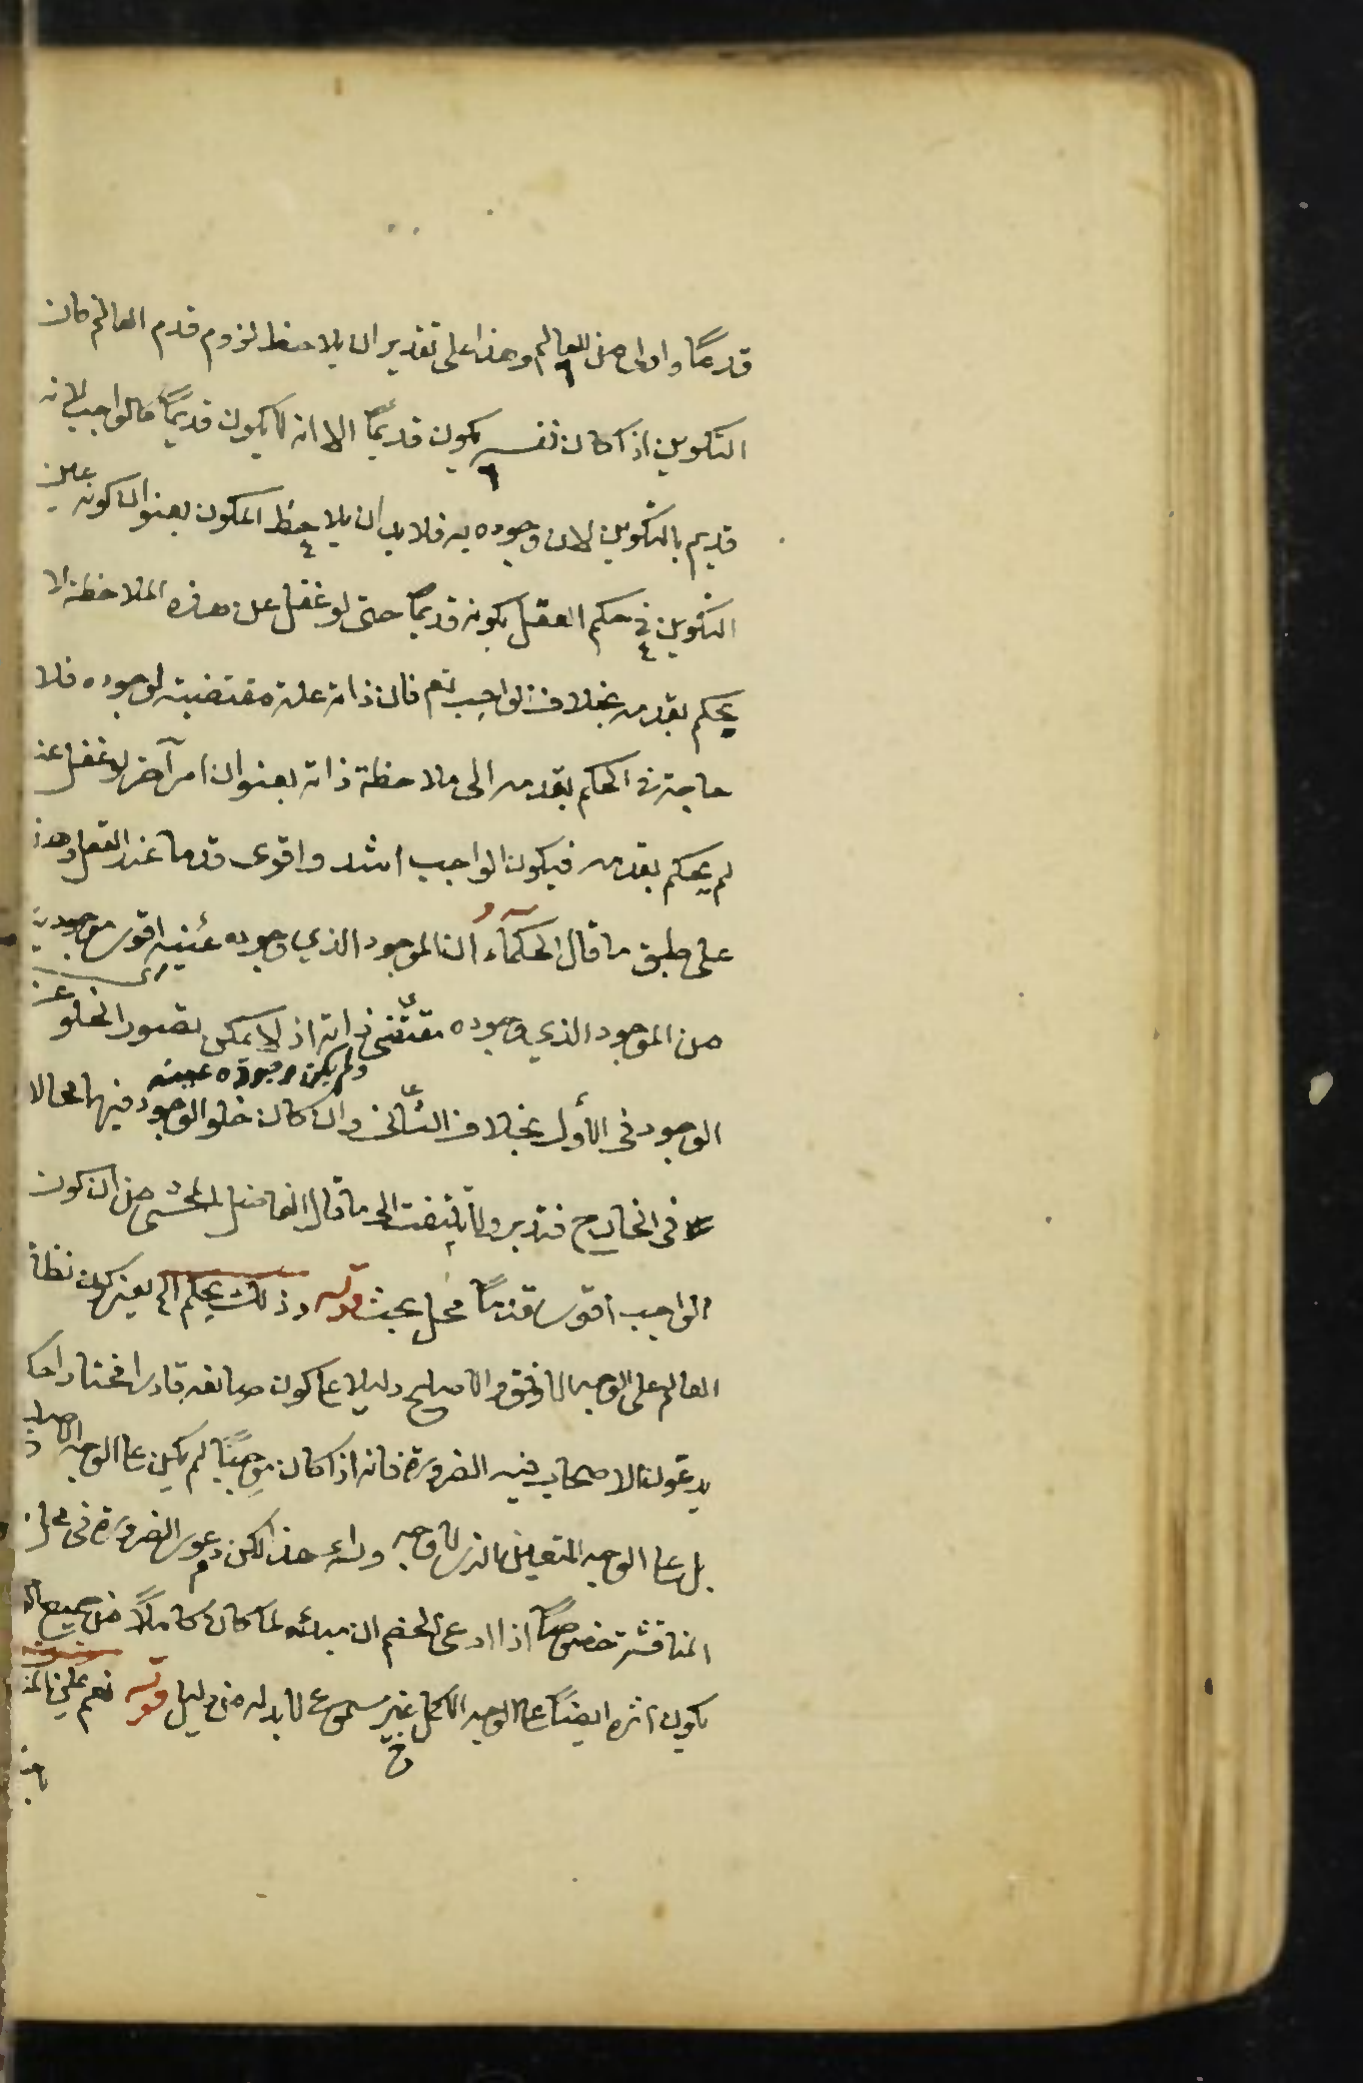 قدمًا واولى من العالم وهذا على تقدير ان يلاحظ لزوم قدم العالم كان
التكوين اذا كان نفسه يكون قديمًا الا انه لا يكون قديمًا كالواجب لانه
قديم بالتكوين لان وجوده به فلا بد ان يلاحظ المكون بعنوان كونه عين
التكوين في حكم العقل بكونه قديمًا حتى لو غفل عن هذه الملاحظة لا
يحكم بقدمه بخلاف الواجب تعم فان ذاته علة مقتضية لوجوده فلا
حاجة في الحكم بقدمه الى ملاحظة ذاته بعنوان امر آخر لو غفل عنه
لم يحكم بقدمه فيكون الواجب اشد واقوى قدما عند العقل وهذا
على طبق ما قال الحكمآء ان الموجود الذي وجوده عينه اقوى موجودية
من الموجود الذي وجوده مقتضى ذاته اذ لا يمكن تصور الخلو عن
ولم يكن وجوده عينه
الوجود في الأول بخلاف الثاني وان كان خلو الوجود فيهما محالا
في الخارج فتدبر ولا تلتفت الى ما قال الفاضل المحشى من ان كون
الواجب اقوى قدمًا محل بحث قوله وذلك يحكم الخ يعني كون نظام
العالم على الوجه الاوفق والاصلح دليلا على كون صانعه قادرا مختارا حكم
يدعون الاصحاب فيه الضرورة فانه اذا كان موجبًا لم يكن على الوجه الاصلح
بل على الوجه المتعين الذي لا وجه وراء هذا لكن دعوى الضرورة في محل
المناقشة خصوصًا اذا ادعى الخصم ان مبدئه لما كان كاملًا من جميع
يكون اثره ايضًا على الوجه الاكمل غير مسموع لا بد له من دليل قوله نعم